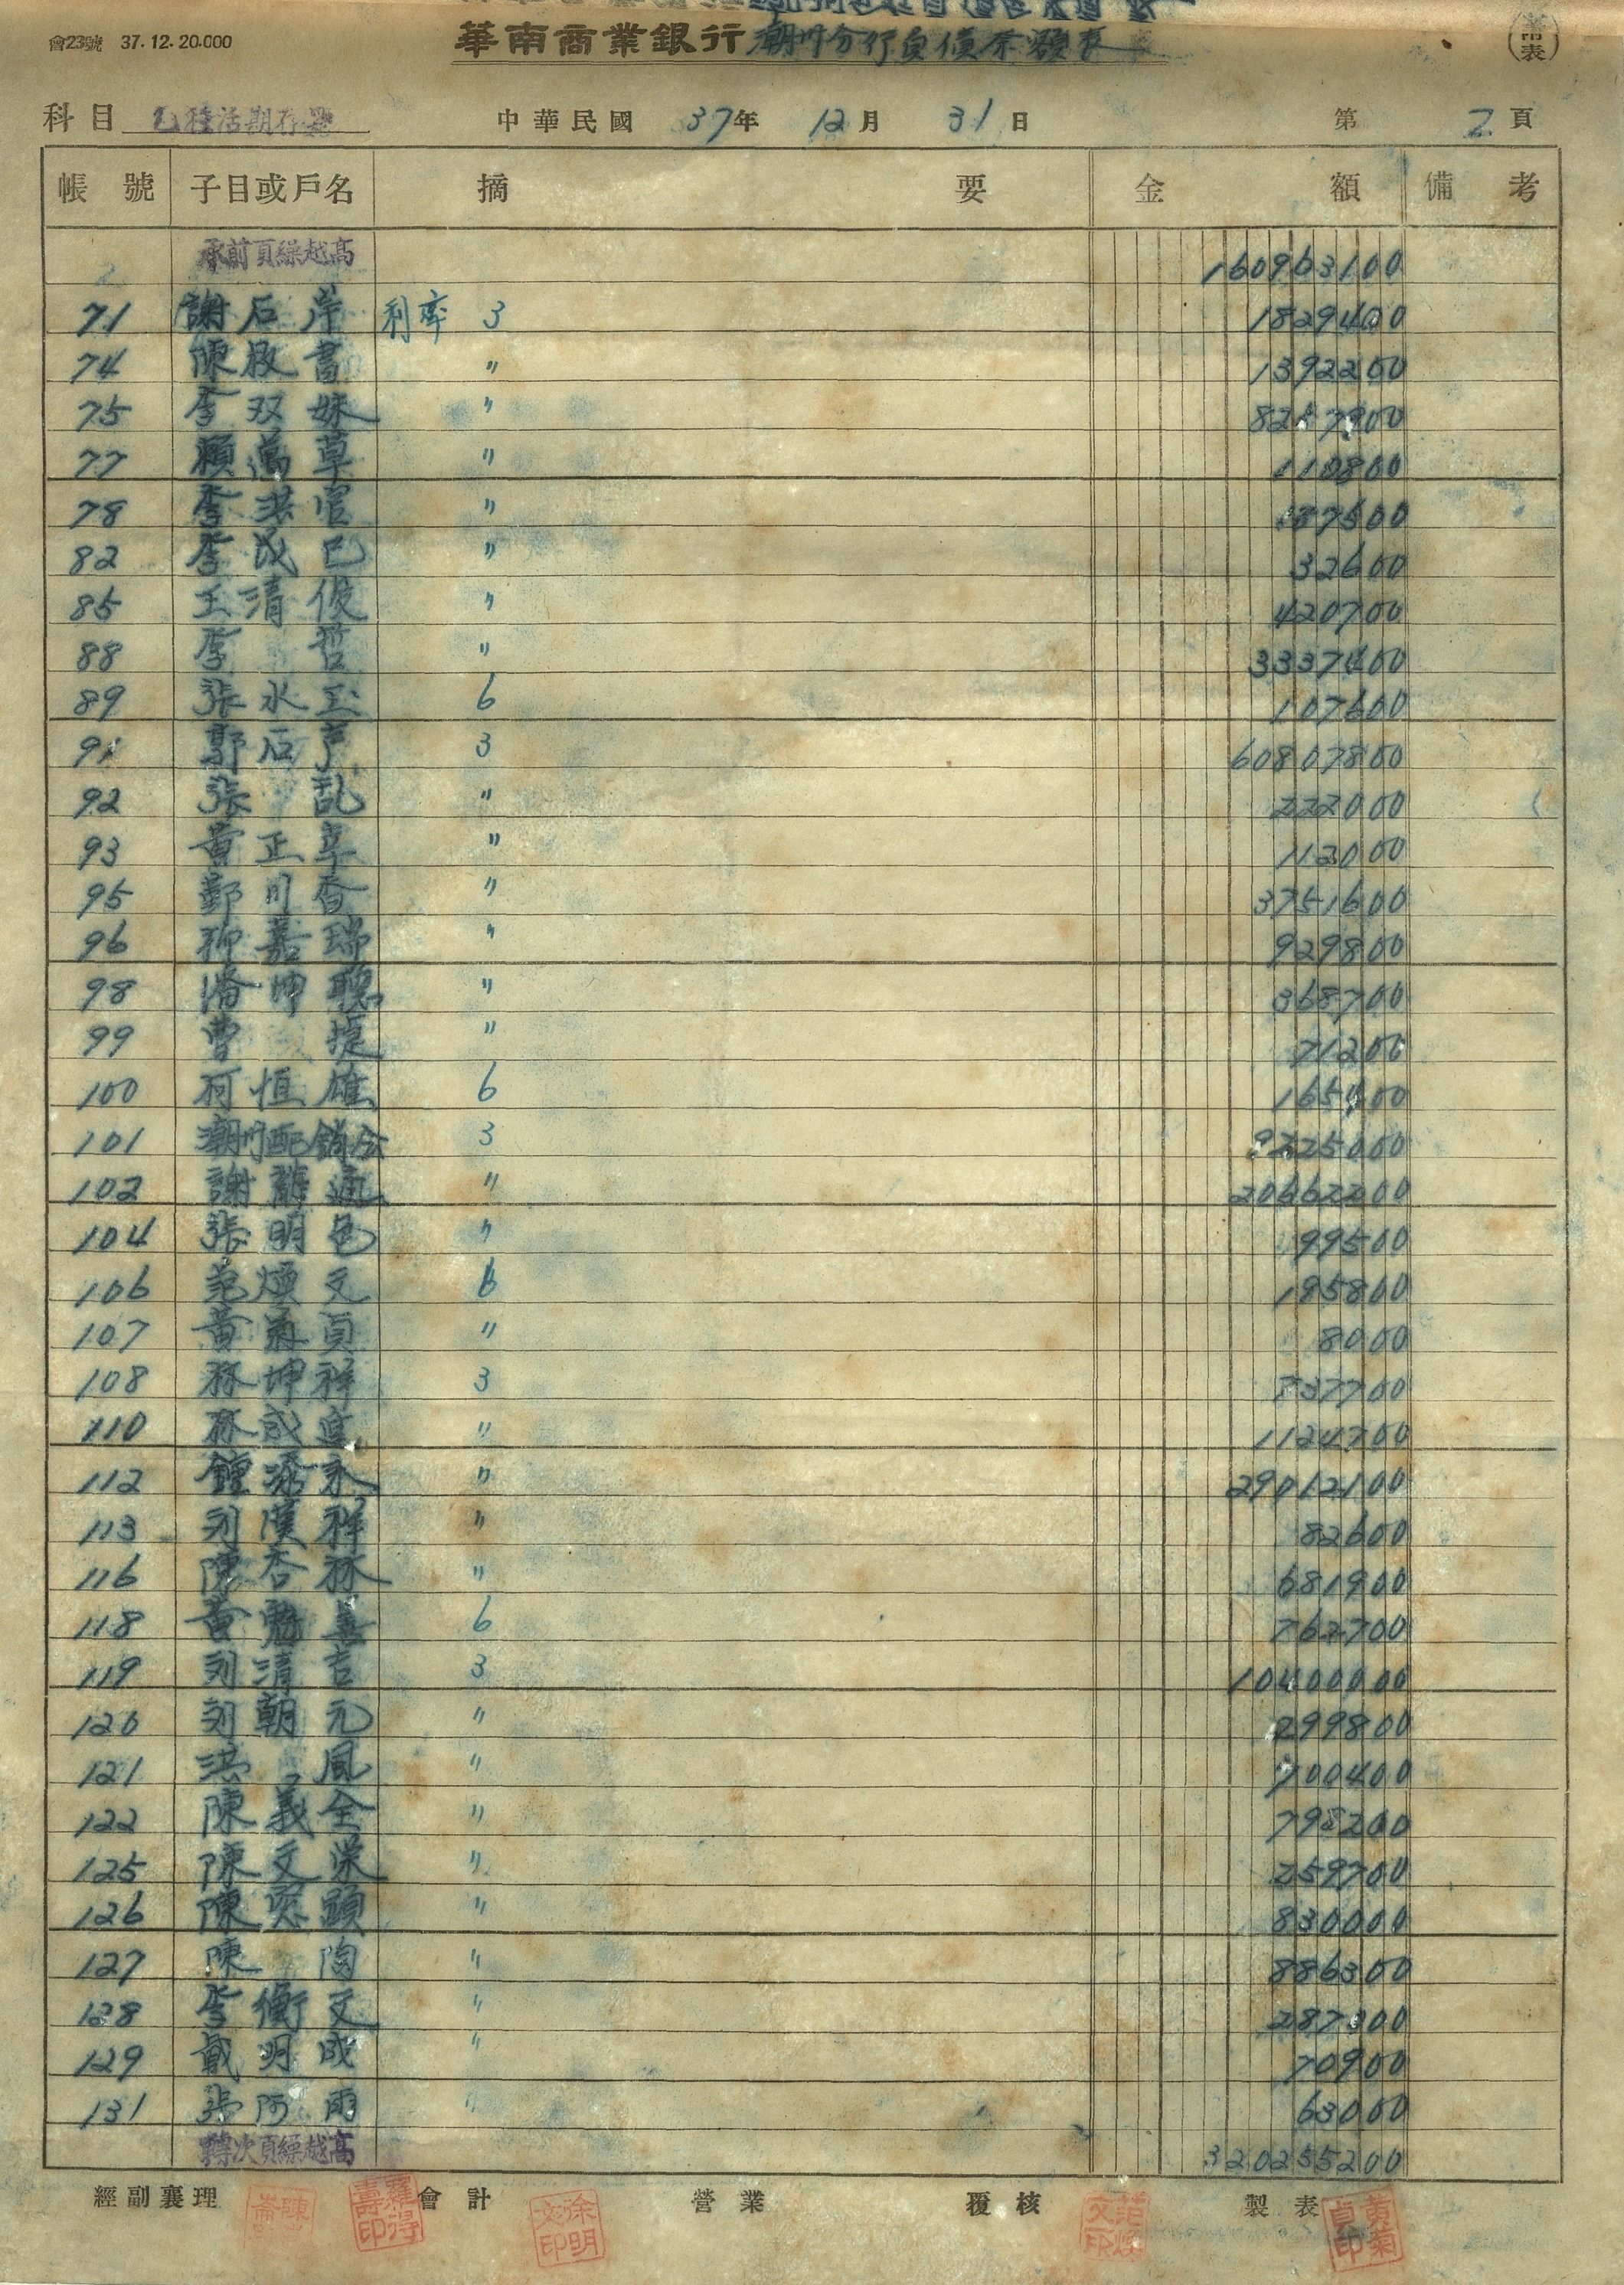 會23號 37.12.20.000
華南商業銀行潮州分行負債余額表
常表
科目 乙種活期存款 中華民國 37年 12月 31日 第 2 頁
帳號 子目或戶名 摘要 金額 備考
承前頁繰越高 16096310 0
71 謝石岸 利率 3 1829400
74 陳啟書 〃 1392200
75 李双妹 〃
77 賴萬草 〃 110800
78 李洪官 〃 187500
82 李成已 〃 32600
85 王清俊 〃 420700
88 李哲 〃 3337400
89 張水玉 6 107600
91 郭石声 3 60807800
92 張乱 〃 222000
93 黃正享 〃 112000
95 鄞川香 〃 3751600
96 柳嘉瑞 〃 929800
98 潘坤聰 〃 368700
99 曹捷 〃 71200
100 柯恒雄 6 165400
101 潮州配銷分 3 9225000
102 謝龍通 〃 20662200
104 張明色 〃 99500
106 范煥文 6 195800
107 黃菊貞 〃 8000
108 林坤祥 3 737700
110 林成達 〃 1124700
112 鍾添永 〃 29012100
113 刘漢祥 〃 82600
116 陳杏林 〃 681900
118 黃勉善 6 762700
119 刘清吉 3 10400000
120 刘朝元 〃 299800
121 洪風 〃 700400
122 陳義全 〃 798200
125 陳文栄 〃 259700
126 陳恩顕 〃 830000
127 陳陶 〃 886300
128 李衡文 〃 287300
129 戴明成 〃 70900
131 張阿雨 〃 63000
轉次頁繰越高 320255200
經副襄理 會計 營業 覆核 製表
羅得壽印 余明文印 范煥文印 黃菊貞印